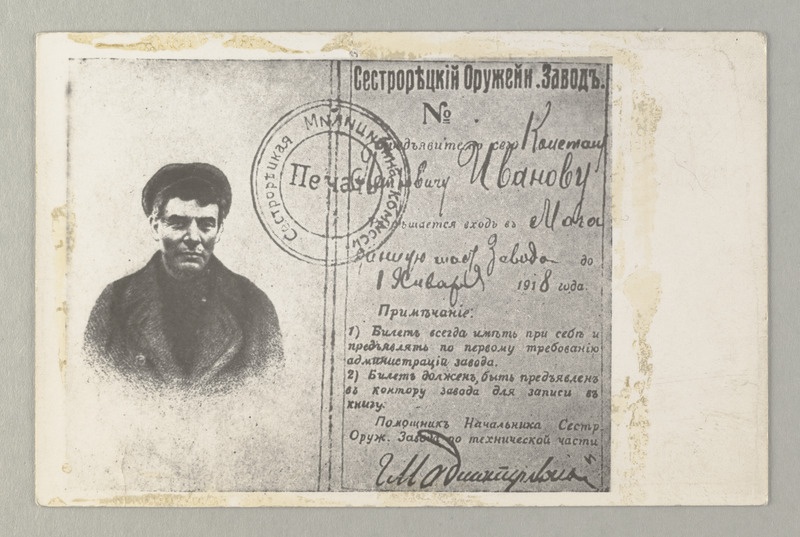 Сестрорѣцкій Оружейн. Заводъ.
№
Предъявителю сего Констант
Иванову
Разрѣшается входъ въ
Завода до
1 Января 1918 года.
Примѣчаніе:
1) Билетъ всегда имѣть при себѣ и
предъявлять по первому требованію
администраціи завода.
2) Билетъ долженъ быть предъявленъ
въ контору завода для записи въ
книгу.
Помощникъ Начальника Сестр.
Оруж. Завода по технической части
Сестрорѣцкая Милиціонная комиссія.
Печать